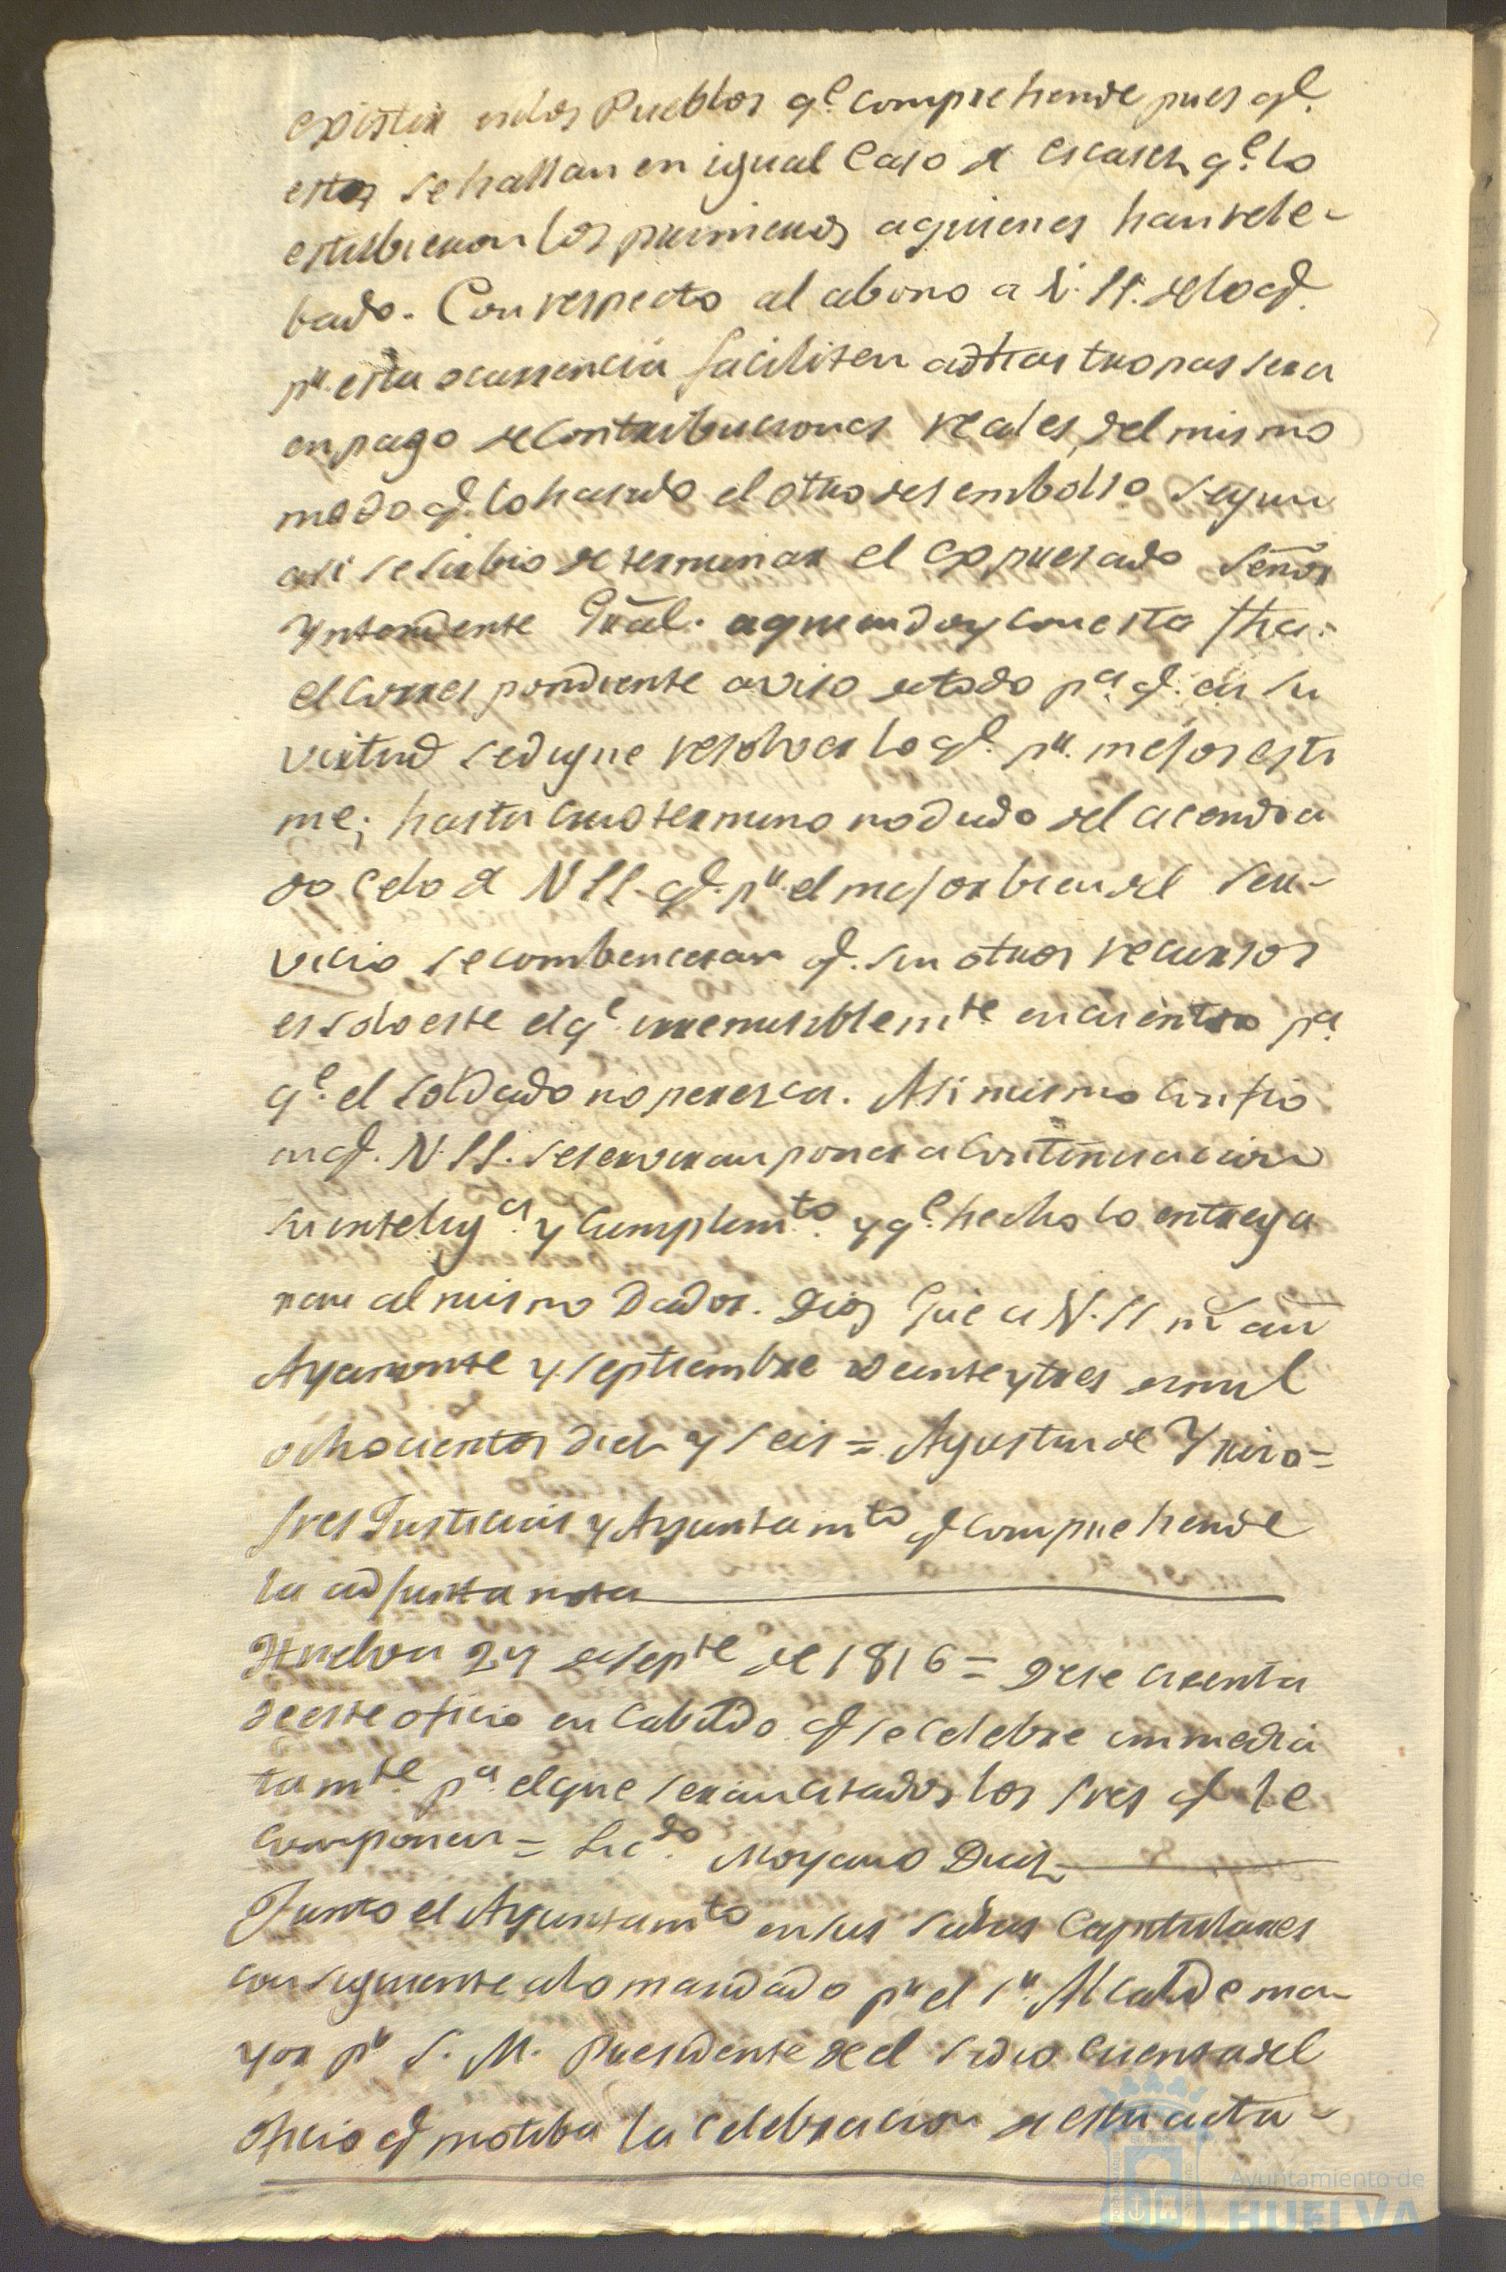 existir en los Pueblos q.e comprehende pues q.e
estos se hallan en igual Caso de escases q.e lo
estubieron los primeros a quienes han rele-
bado. Con respecto al abono a V. SS. de lo q.e
p.r esta ocurrencia faciliten a dhas tropas sera
en pago de Contribuciones reales, del mismo
modo q.e lo ha sido el otro desembolso segun
asi se sirbio determinar el expresado Señor
Yntendente Gral. a quien doy con esta fha.
el correspondiente aviso de todo p.a q.e en su
virtud se digne resolver lo q.e p.r mejor esti
me; hasta cuio termino no dudo del acendra
do celo de V SS. q.e p.r el mejor bien del Ser-
vicio se combenceran q.e sin otros recursos
es solo este el q.e irremisiblem.te encuentro p.a
q.e el soldado no peresca. Asi mismo confio
en q.e V. SS. se serviran poner a continuacion
su intelig.a y Cumplim.to y q.e hecho lo entrega
ran al mismo Dador. Dios gue a V. SS m.s an.s
Ayamonte y Septiembre veinte y tres de mil
ochocientos diez y seis = Agustin de
Sres Justicias y Ayuntam.to q.e comprehende
la adjunta nota
Huelva 24 de Sep.te de 1816 = Dese cuenta
de este oficio en Cabildo q.e se celebre inmedia
tam.te p.a el que seran citados los Sres q.e le
componen = Lic.do Moyano Diaz
Junto el Ayuntam.to en sus Salas Capitulares
consiguiente a lo mandado p.r el S.r Alcalde ma-
yor p.r S. M. Presidente de el se dio cuenta del
oficio q.e motiba la celebracion de esta acta-
Ayuntamiento de
HUELVA